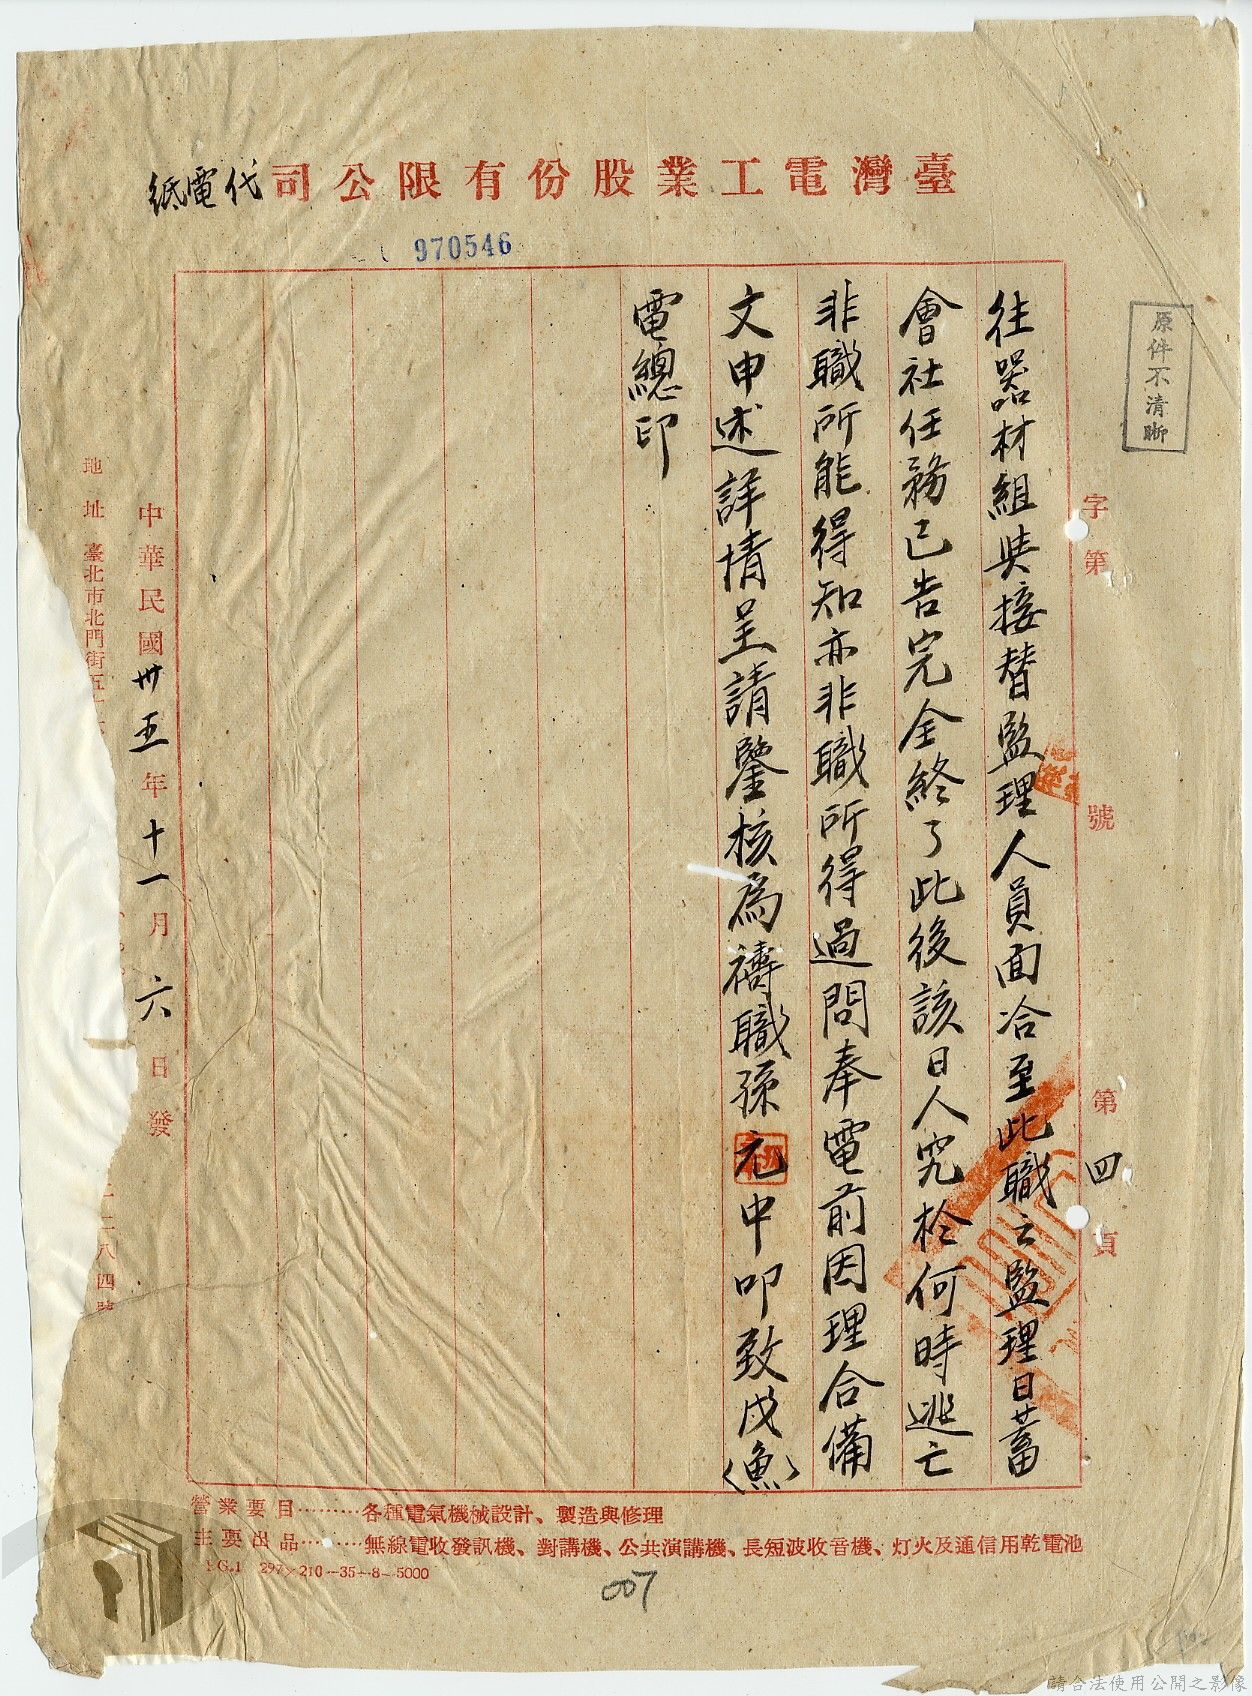 臺灣電工業股份有限公司代電紙
970546
原件不清晰
字第　號　第四頁
往器材組與接替監理人員面洽至此職之監理日蓄
會社任務已告完全終了此後該日人究於何時逃亡
非職所能得知亦非職所得過問奉電前因理合備
文申述詳情呈請鑒核為禱職孫元中叩致戌(魚)
電總印
中華民國卅五年十一月六日發
地址 臺北市北門街五
二二八四號
營業要目………各種電氣機械設計、製造與修理
主要出品………無線電收發訊機、對講機、公共演講機、長短波收音機、灯火及通信用乾電池
FG.1 297×210--35-8-5000
007
請合法使用公開之影像